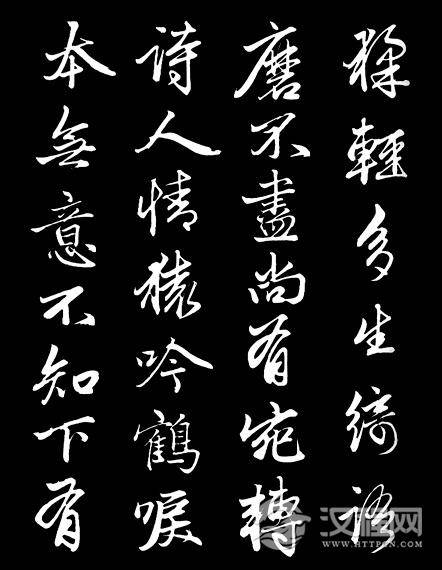 猱輕多生綺語
磨不盡尚有宛轉
詩人情猿吟鶴唳
本無意不知下有
汉程网
WWW.HTTPCN.COM